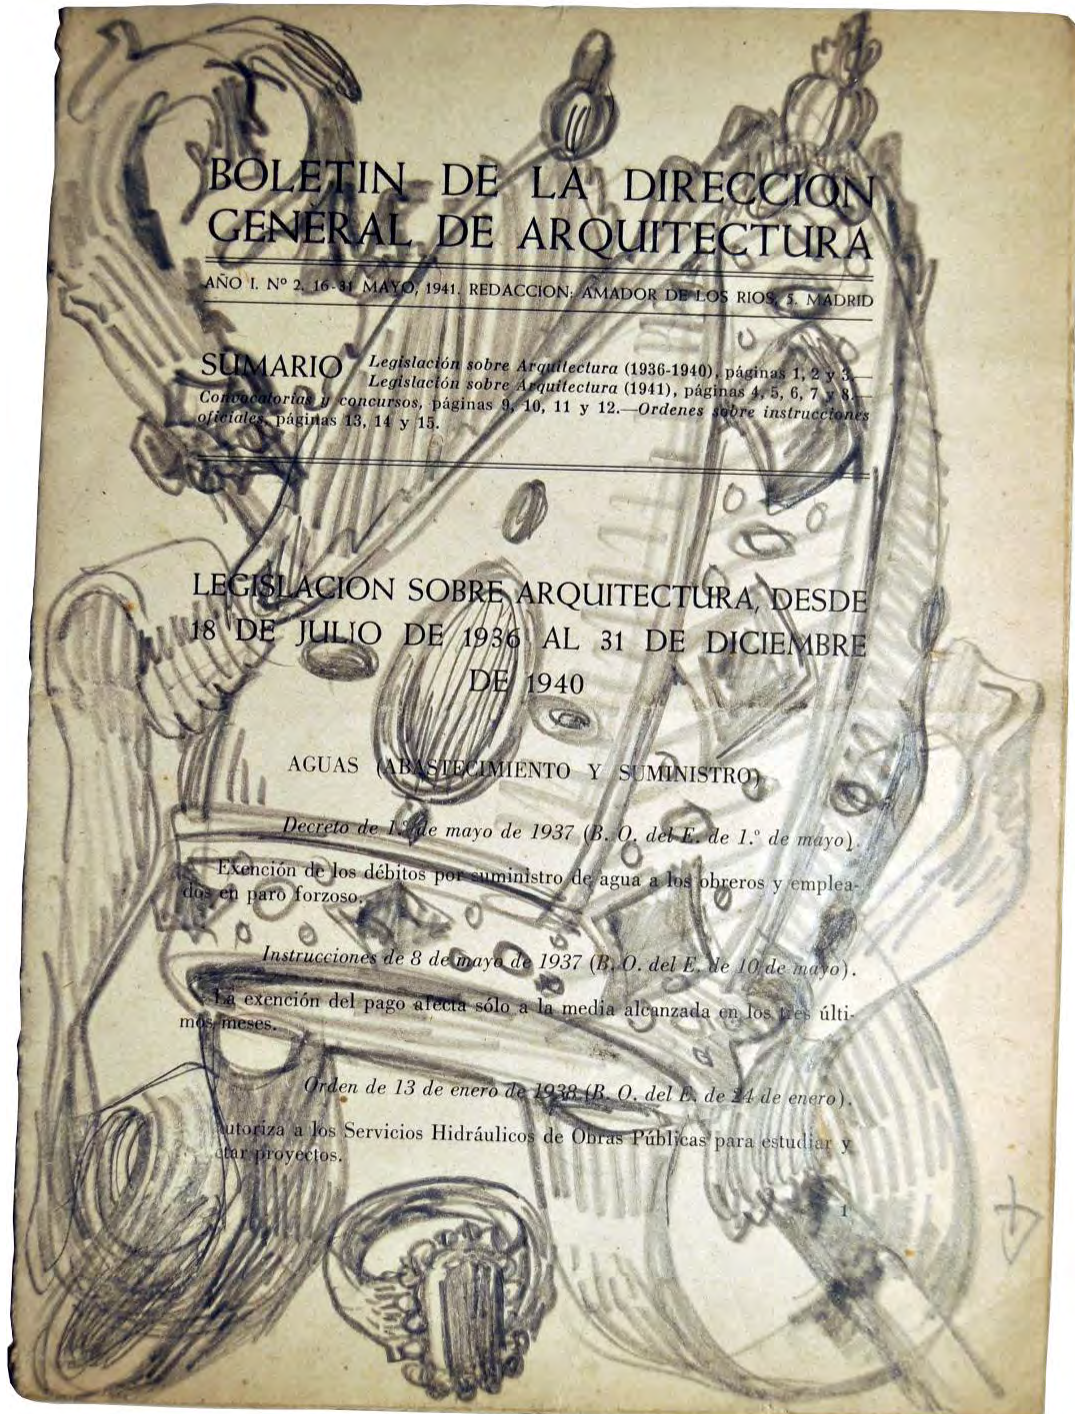 BOLETIN DE LA DIRECCION
GENERAL DE ARQUITECTURA
AÑO I. Nº 2. 16-31 MAYO, 1941. REDACCION: AMADOR DE LOS RIOS, 5. MADRID
SUMARIO Legislación sobre Arquitectura (1936-1940), páginas 1, 2 y 3.—
Legislación sobre Arquitectura (1941), páginas 4, 5, 6, 7 y 8.—
Convocatorias y concursos, páginas 9, 10, 11 y 12.—Ordenes sobre instrucciones
oficiales, páginas 13, 14 y 15.
LEGISLACION SOBRE ARQUITECTURA, DESDE
18 DE JULIO DE 1936 AL 31 DE DICIEMBRE
DE 1940
AGUAS (ABASTECIMIENTO Y SUMINISTRO)
Decreto de 1.º de mayo de 1937 (B. O. del E. de 1.º de mayo).
Exención de los débitos por suministro de agua a los obreros y emplea-
dos en paro forzoso.
Instrucciones de 8 de mayo de 1937 (B. O. del E. de 10 de mayo).
La exención del pago afecta sólo a la media alcanzada en los tres últi-
mos meses.
Orden de 13 de enero de 1938 (B. O. del E. de 24 de enero).
utoriza a los Servicios Hidráulicos de Obras Públicas para estudiar y
ctar proyectos.
1